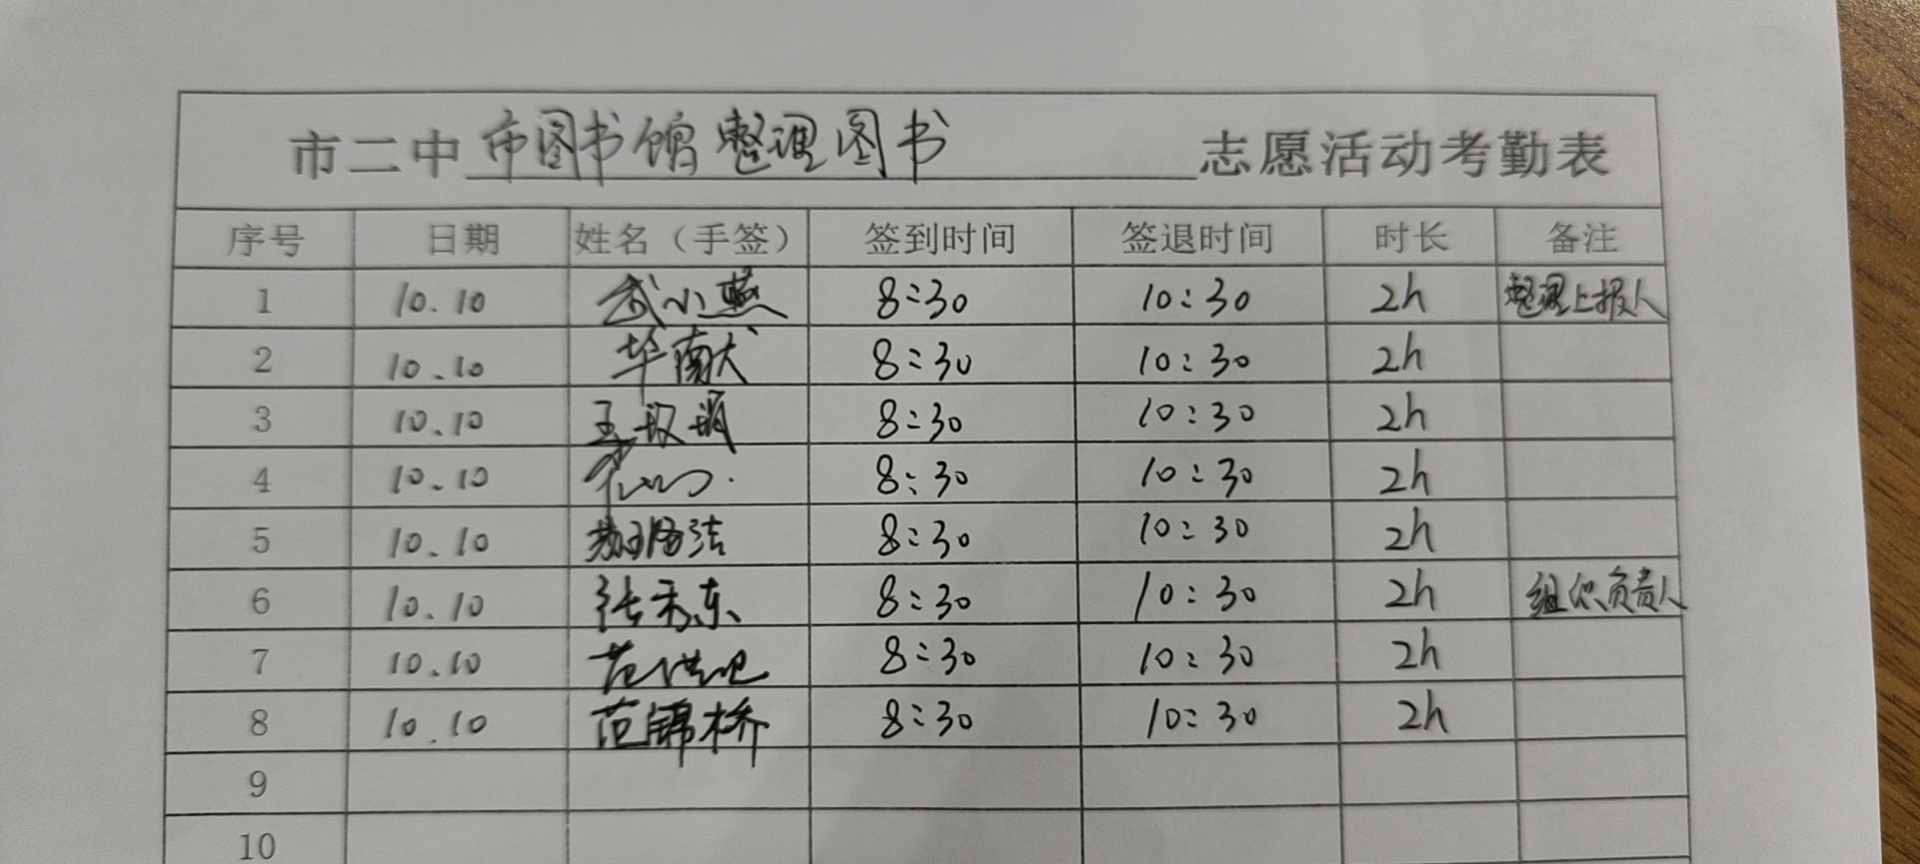 市二中市图书馆整理图书志愿活动考勤表
序号 日期 姓名（手签） 签到时间 签退时间 时长 备注
1 10.10 武小燕 8:30 10:30 2h 整理上报人
2 10.10 华南犬 8:30 10:30 2h
3 10.10 王 8:30 10:30 2h
4 10.10 8:30 10:30 2h
5 10.10 洁 8:30 10:30 2h
6 10.10 张秀东 8:30 10:30 2h 组织负责人
7 10.10 范 8:30 10:30 2h
8 10.10 范锦桥 8:30 10:30 2h
9
10